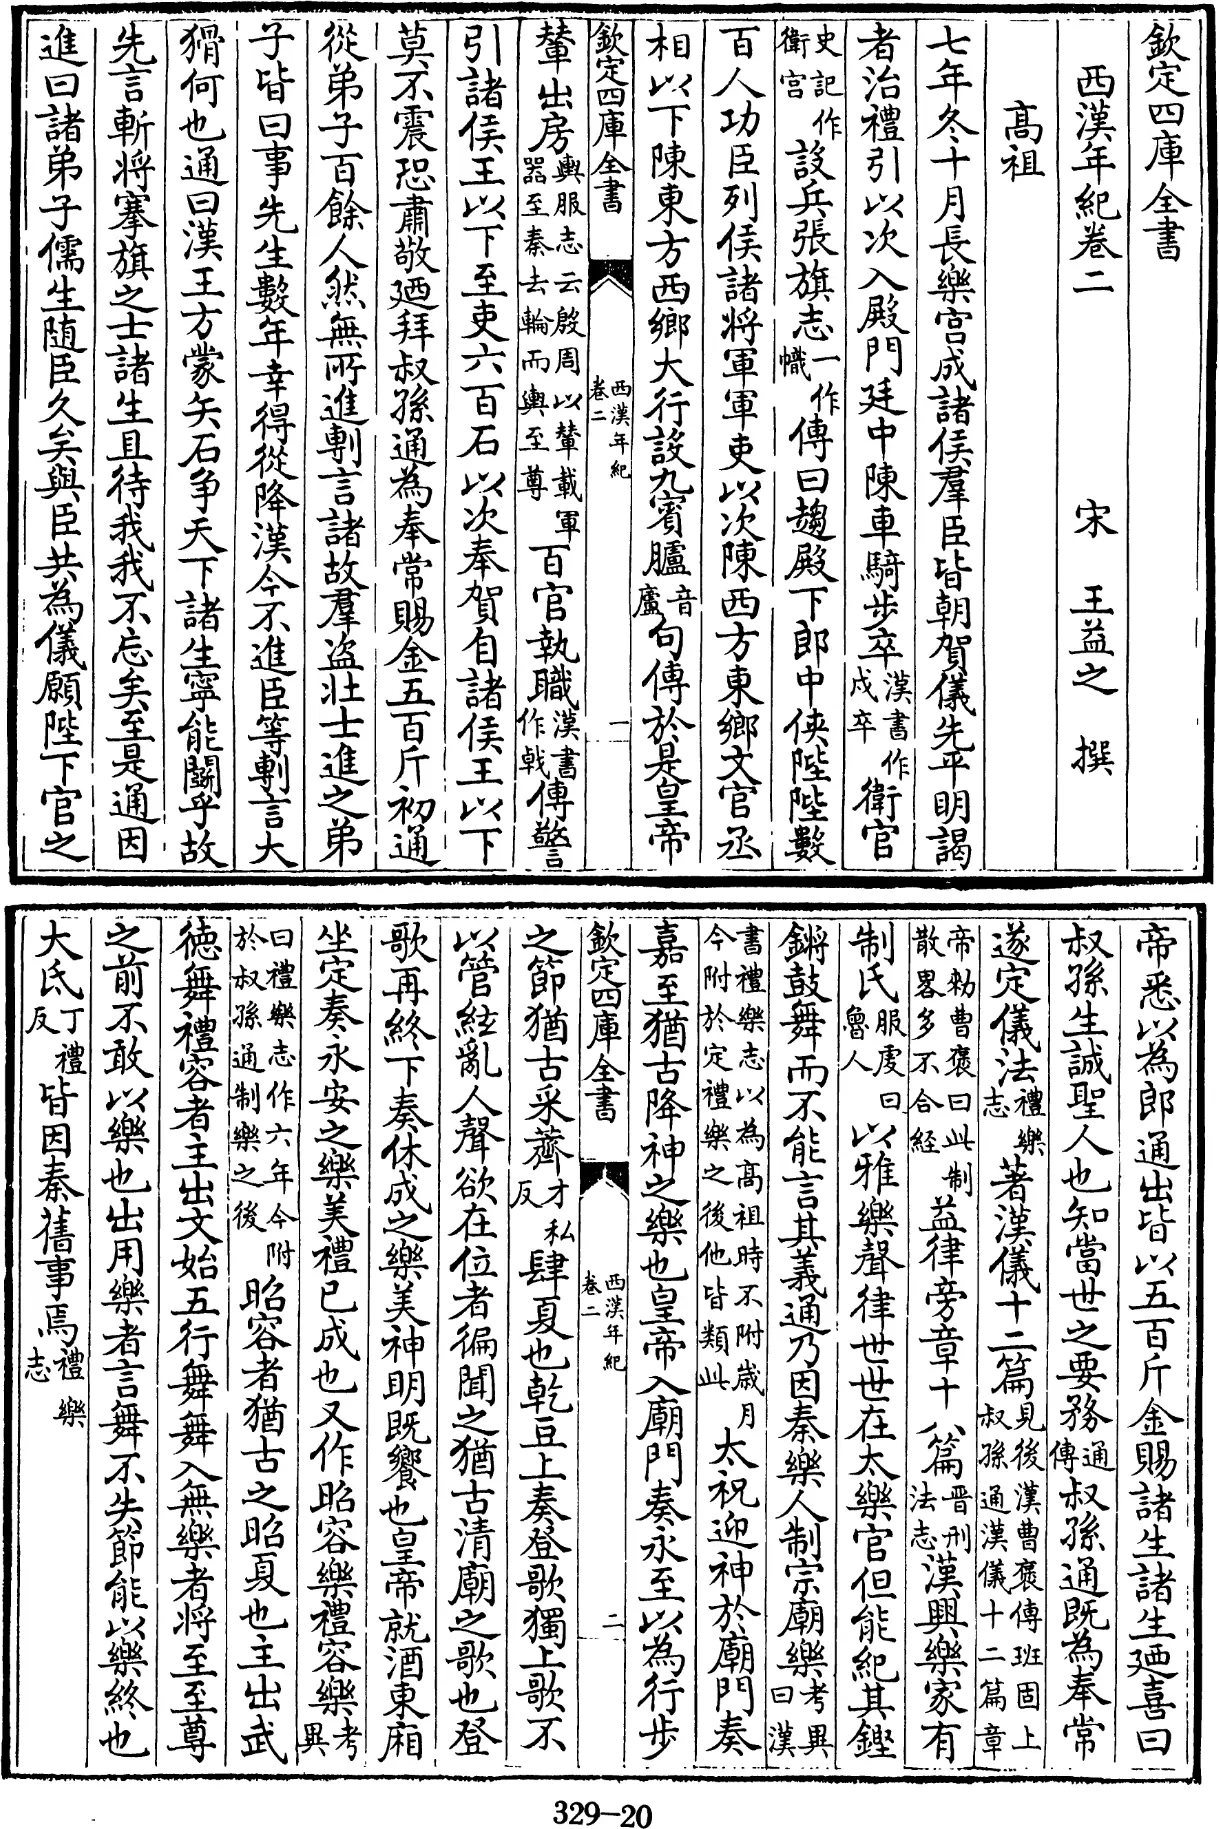 欽定四庫全書
西漢年紀卷二　宋　王益之　撰
高祖
七年冬十月長樂宮成諸侯羣臣皆朝賀儀先平明謁
者治禮引以次入殿門廷中陳車騎步卒漢書作戍卒衛官
史記作衛宮設兵張旗志一作幟傳曰趨殿下郎中俠陛陛數
百人功臣列侯諸將軍軍吏以次陳西方東鄉文官丞
相以下陳東方西鄉大行設九賓臚音廬句傳於是皇帝
欽定四庫全書　西漢年紀卷二　一
輦出房輿服志云殷周以輦載軍器至秦去輪而輿至尊百官執職漢書作戟傳警
引諸侯王以下至吏六百石以次奉賀自諸侯王以下
莫不震恐肅敬廼拜叔孫通為奉常賜金五百斤初通
從弟子百餘人然無所進剸言諸故羣盜壯士進之弟
子皆曰事先生數年幸得從降漢今不進臣等剸言大
猾何也通曰漢王方蒙矢石爭天下諸生寧能鬭乎故
先言斬將搴旗之士諸生且待我我不忘矣至是通因
進曰諸弟子儒生隨臣久矣與臣共為儀願陛下官之
帝悉以為郎通出皆以五百斤金賜諸生諸生廼喜曰
叔孫生誠聖人也知當世之要務通傳叔孫通既為奉常
遂定儀法禮樂志著漢儀十二篇見後漢曹褒傳班固上叔孫通漢儀十二篇章
帝勑曹褒曰此制散畧多不合經益律旁章十八篇晉刑法志漢興樂家有
制氏服虔曰魯人以雅樂聲律世世在太樂官但能紀其鏗
鏘鼓舞而不能言其義通乃因秦樂人制宗廟樂考異曰漢
書禮樂志以為高祖時不附歲月今附於定禮樂之後他皆類此太祝迎神於廟門奏
嘉至猶古降神之樂也皇帝入廟門奏永至以為行步
欽定四庫全書　西漢年紀卷二　二
之節猶古采薺才私反肆夏也乾豆上奏登歌獨上歌不
以管絃亂人聲欲在位者徧聞之猶古清廟之歌也登
歌再終下奏休成之樂美神明既饗也皇帝就酒東廂
坐定奏永安之樂美禮已成也又作昭容樂禮容樂考異
曰禮樂志作六年今附於叔孫通制樂之後昭容者猶古之昭夏也主出武
德舞禮容者主出文始五行舞舞入無樂者將至至尊
之前不敢以樂也出用樂者言舞不失節能以樂終也
大氐丁禮反皆因秦舊事焉禮樂志
329-20